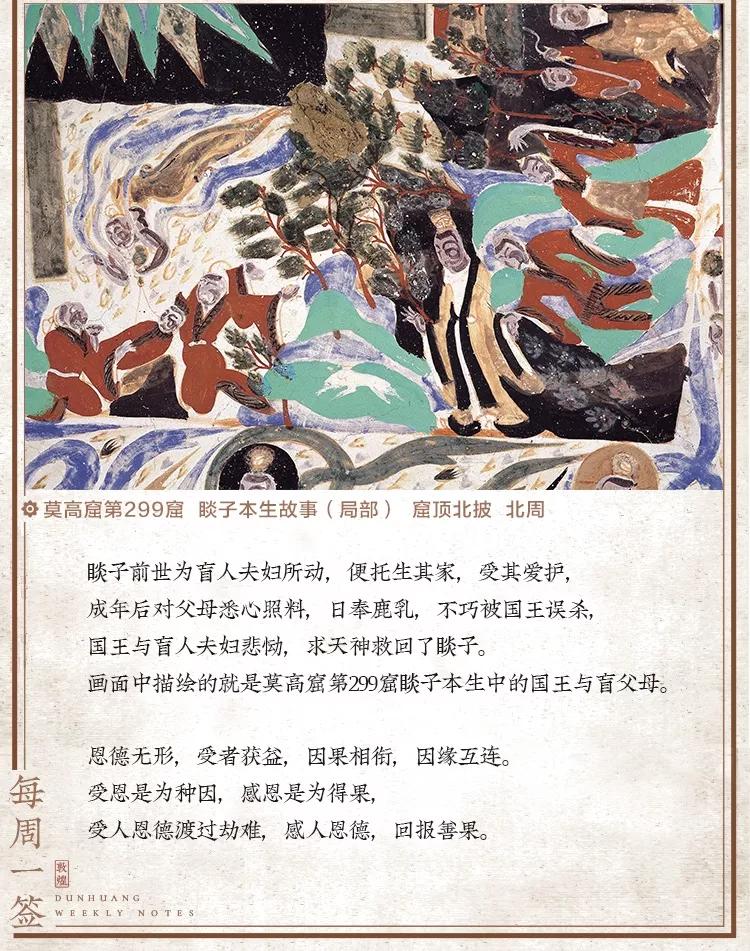 莫高窟第299窟 睒子本生故事（局部） 窟顶北披 北周
睒子前世为盲人夫妇所动，便托生其家，受其爱护，
成年后对父母悉心照料，日奉鹿乳，不巧被国王误杀，
国王与盲人夫妇悲恸，求天神救回了睒子。
画面中描绘的就是莫高窟第299窟睒子本生中的国王与盲父母。
恩德无形，受者获益，因果相衔，因缘互连。
受恩是为种因，感恩是为得果，
受人恩德渡过劫难，感人恩德，回报善果。
每周一签
敦煌
DUNHUANG
WEEKLY NOTES